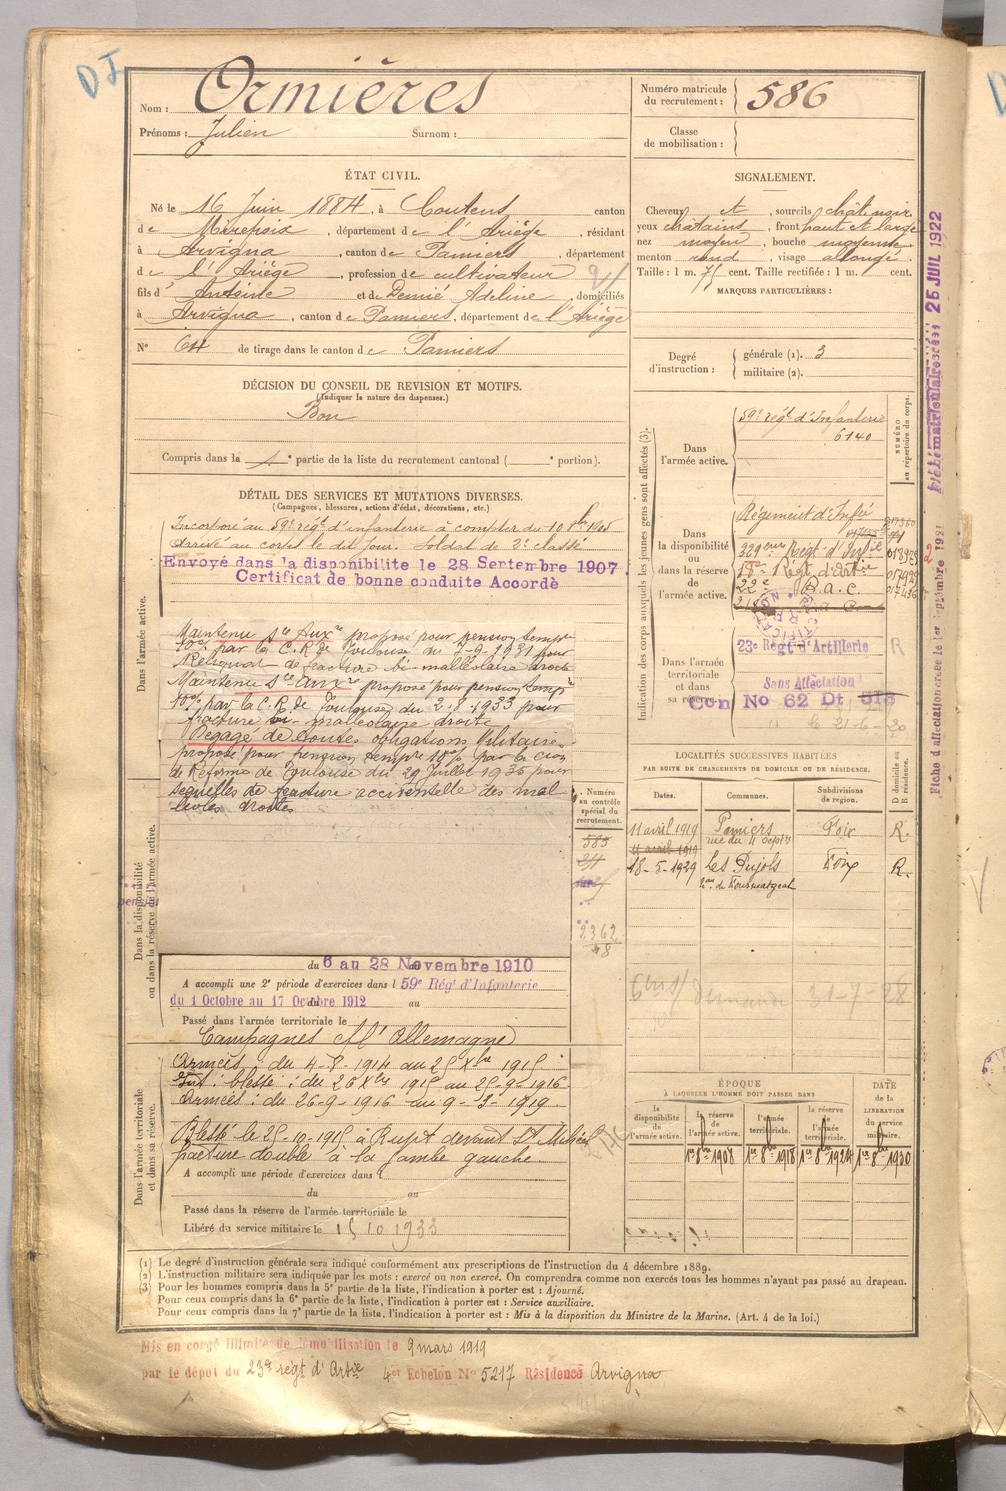 DI
Nom : Ormières
Prénoms : Julien Surnom :
Numéro matricule du recrutement : 586
Classe de mobilisation :
ÉTAT CIVIL.
Né le 16 Juin 1884, à Coutens canton
de Mirepoix, département de l'Ariège, résidant
à Arvigna, canton de Pamiers, département
de l'Ariège, profession de cultivateur
fils d'Antoine et de Demié Adeline, domiciliés
à Arvigna, canton de Pamiers, département de l'Ariège
N° 64 de tirage dans le canton de Pamiers
SIGNALEMENT.
Cheveux et, sourcils chât. noir
yeux châtains, front haut et large
nez moyen, bouche moyenne
menton rond, visage allongé
Taille : 1 m. 71 cent. Taille rectifiée : 1 m. cent.
MARQUES PARTICULIÈRES :
Degré d'instruction : générale (1). 3
militaire (2).
DÉCISION DU CONSEIL DE REVISION ET MOTIFS.
(Indiquer la nature des dispenses.)
Bon
Compris dans la 1e partie de la liste du recrutement cantonal ( e portion).
DÉTAIL DES SERVICES ET MUTATIONS DIVERSES.
(Campagnes, blessures, actions d'éclat, décorations, etc.)
Dans l'armée active.
Incorporé au 59e régt d'infanterie à compter du 10 8bre 1905
arrivé au corps le dit jour. Soldat de 2e classe
Envoyé dans la disponibilite le 28 Septembre 1907.
Certificat de bonne conduite Accordé
Maintenu Sce Auxre proposé pour pension tempre
10% par la C.R. de Toulouse du 2-9-1931 pour
Reliquat de fracture bi-malléolaire droite
Maintenu Sce Auxre proposé pour pension tempre
10% par la C.R. de Toulouse du 2-8-1933 pour
fracture bi-malléolaire droite
Dégagé de toutes obligations Militaires
proposé pour pension tempre 10% par la Cion
de Réforme de Toulouse du 29 Juillet 1935 pour
séquelles de fracture accidentelle des mal
léoles droites
Dans la disponibilité ou dans la réserve de l'armée active.
du 6 au 28 Novembre 1910
A accompli une 2e période d'exercices dans l 59e Rég' d'Infanterie
du 1 Octobre au 17 Octobre 1912 au
Passé dans l'armée territoriale le
Dans l'armée territoriale et dans sa réserve.
Campagnes cf l'Allemagne
Armées : du 4-8-1914 au 25 Xbre 1915
Int : blessé : du 26 Xbre 1915 au 25-9-1916
Armées : du 26-9-1916 au 9-3-1919
Blessé le 25-10-1915 à Rupt devant St Mihiel
fracture double à la jambe gauche
A accompli une période d'exercices dans l
du au
Passé dans la réserve de l'armée territoriale le
Libéré du service militaire le 15 10 1933
Numéro au contrôle spécial du recrutement.
585
2362
48
Indication des corps auxquels les jeunes gens sont affectés (3).
NUMÉRO au répertoire du corps.
Dans l'armée active.
59e régt d'Infanterie
6140
Dans la disponibilité ou dans la réserve de l'armée active.
Régiment d'Infie
329eme Régt d'Infie 018929
18e Régt d'Artie 017929
22e R.a.c. 017436
Dans l'armée territoriale et dans sa réserve.
23e Régt d'Artillerie R
Sans Affectation
Cen No 62 Dt 318
le 21-6-20
LOCALITÉS SUCCESSIVES HABITÉES
PAR SUITE DE CHANGEMENTS DE DOMICILE OU DE RÉSIDENCE.
Dates. Communes. Subdivisions de région. D domicile ou R résidence.
11 avril 1919 Pamiers rue du 4 Septre Foix R.
11 avril 1919
18-5-1929 Les Pujols Foix R.
demande 31-7-28
ÉPOQUE
À LAQUELLE L'HOMME DOIT PASSER DANS
la disponibilité de l'armée active. la réserve de l'armée active. l'armée territoriale. la réserve de l'armée territoriale. DATE de la LIBÉRATION du service militaire.
1er 8bre 1908 1er 8bre 1918 1er 8bre 1924 1er 8bre 1930
Fiche d'affectation créée le 1er Septembre 1921
Fiche matriculaire créée 25 JUIL 1922
(1) Le degré d'instruction générale sera indiqué conformément aux prescriptions de l'instruction du 4 décembre 1889.
(2) L'instruction militaire sera indiquée par les mots : exercé ou non exercé. On comprendra comme non exercés tous les hommes n'ayant pas passé au drapeau.
(3) Pour les hommes compris dans la 5e partie de la liste, l'indication à porter est : Ajourné.
Pour ceux compris dans la 6e partie de la liste, l'indication à porter est : Service auxiliaire.
Pour ceux compris dans la 7e partie de la liste, l'indication à porter est : Mis à la disposition du Ministre de la Marine. (Art. 4 de la loi.)
Mis en congé illimité de démobilisation le 9 mars 1919
par le dépôt du 23e régt d'Artie 4er Echelon No 5217 Résidence Arvigna